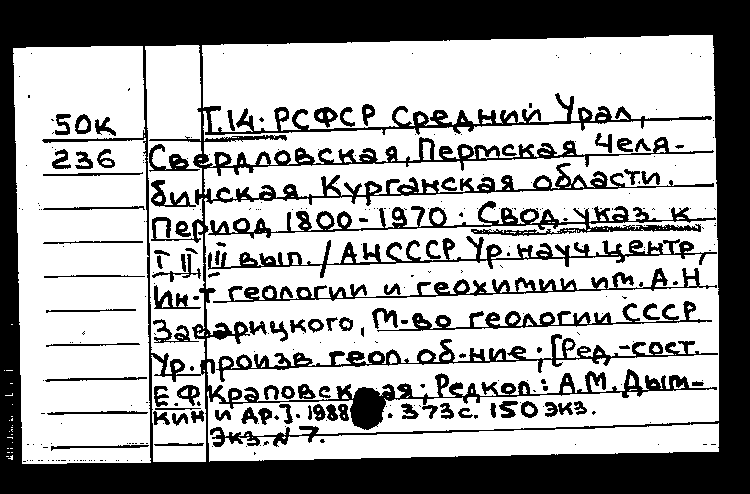 50К Т.14: РСФСР, Средний Урал,
236 Свердловская, Пермская, Челя-
бинская, Курганская области.
Период 1800-1970: Свод. указ. к
I, II, III вып. / АНСССР. Ур. науч. центр,
Ин-т геологии и геохимии им. А.Н.
Заварицкого, М-во геологии СССР
Ур. произв. геол. об-ние; [Ред.-сост.
Е.Ф. Краповск ая; Редкол.: А.М. Дым-
кин и др.]. 1988 . 373 с. 150 экз.
Экз. N 7.